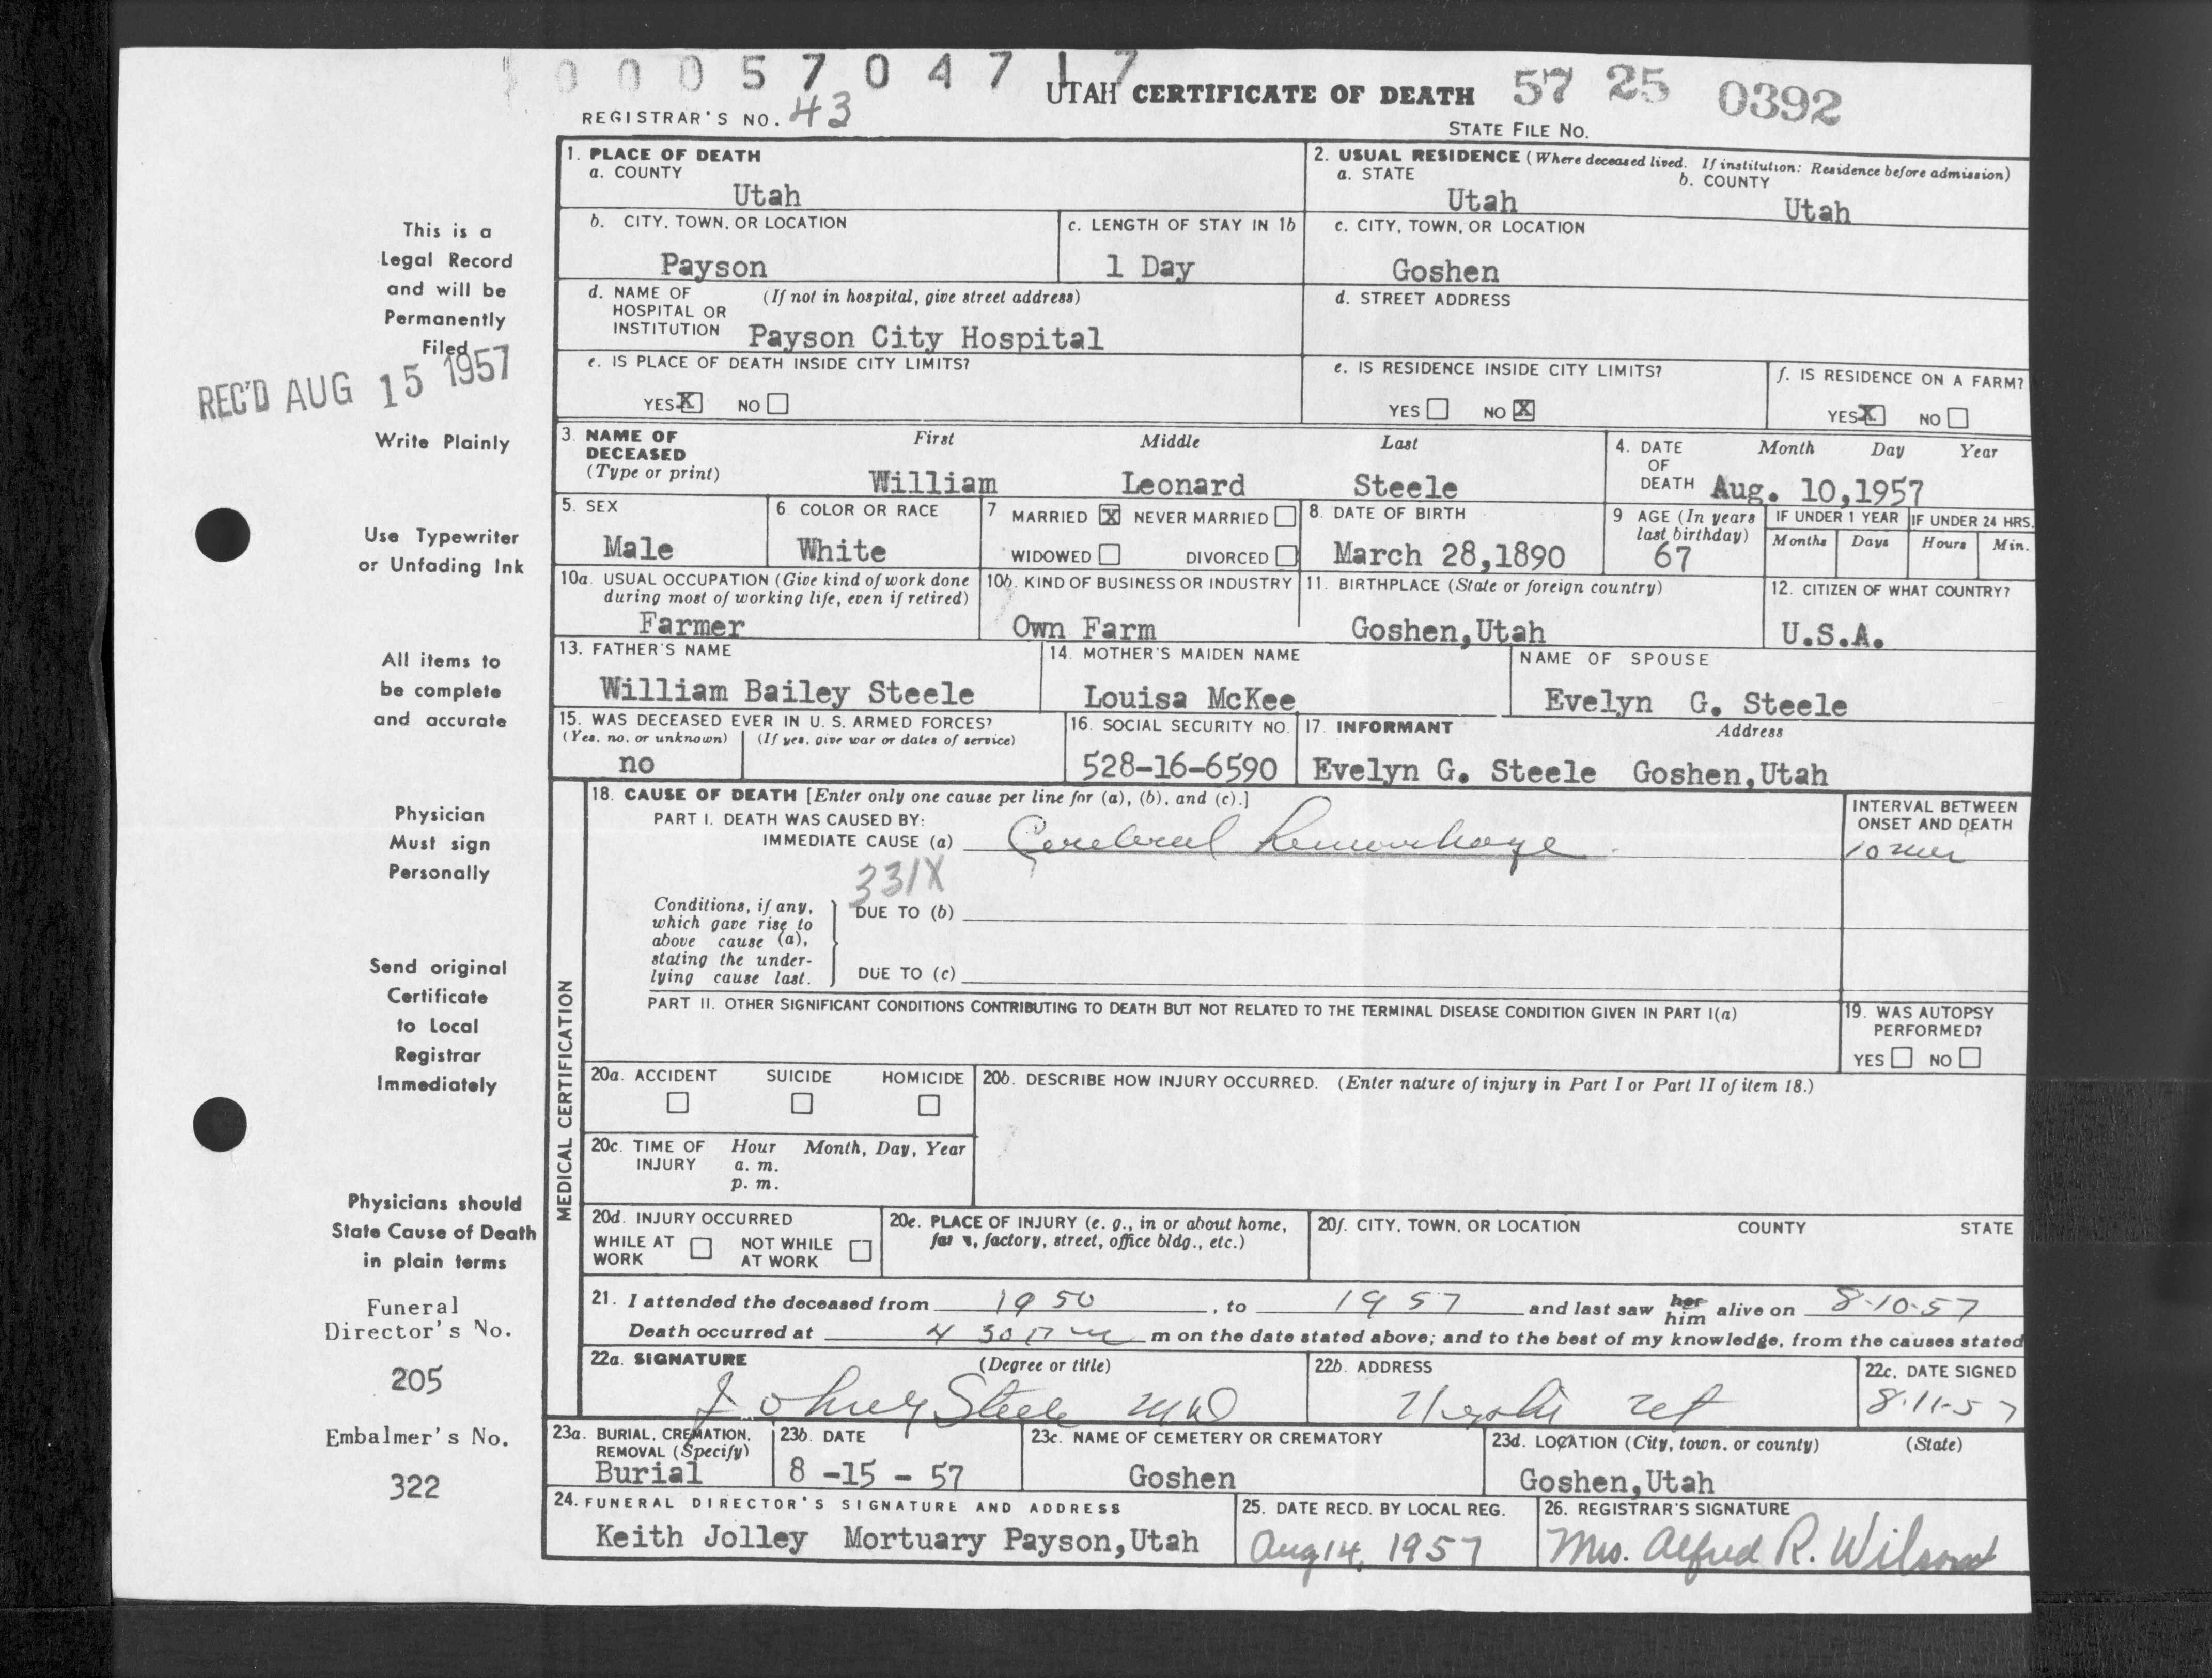 0 0 0 5 7 0 4 7 1 7
UTAH CERTIFICATE OF DEATH 57 25 0392
REGISTRAR'S NO. 43
STATE FILE NO.
This is a
Legal Record
and will be
Permanently
Filed
REC'D AUG 15 1957
Write Plainly
Use Typewriter
or Unfading Ink
All items to
be complete
and accurate
Physician
Must sign
Personally
Send original
Certificate
to Local
Registrar
Immediately
Physicians should
State Cause of Death
in plain terms
Funeral
Director's No.
205
Embalmer's No.
322
1. PLACE OF DEATH
a. COUNTY
Utah
2. USUAL RESIDENCE (Where deceased lived. If institution: Residence before admission)
a. STATE b. COUNTY
Utah Utah
b. CITY, TOWN, OR LOCATION
Payson
c. LENGTH OF STAY IN 1b
1 Day
c. CITY, TOWN, OR LOCATION
Goshen
d. NAME OF (If not in hospital, give street address)
HOSPITAL OR
INSTITUTION Payson City Hospital
d. STREET ADDRESS
e. IS PLACE OF DEATH INSIDE CITY LIMITS?
YES X NO
e. IS RESIDENCE INSIDE CITY LIMITS?
YES NO X
f. IS RESIDENCE ON A FARM?
YES X NO
3. NAME OF First Middle Last
DECEASED
(Type or print) William Leonard Steele
4. DATE Month Day Year
OF
DEATH Aug. 10,1957
5. SEX
Male
6. COLOR OR RACE
White
7 MARRIED X NEVER MARRIED
WIDOWED DIVORCED
8. DATE OF BIRTH
March 28,1890
9 AGE (In years
last birthday)
67
IF UNDER 1 YEAR
Months Days
IF UNDER 24 HRS.
Hours Min.
10a. USUAL OCCUPATION (Give kind of work done
during most of working life, even if retired)
Farmer
10b. KIND OF BUSINESS OR INDUSTRY
Own Farm
11. BIRTHPLACE (State or foreign country)
Goshen,Utah
12. CITIZEN OF WHAT COUNTRY?
U.S.A.
13. FATHER'S NAME
William Bailey Steele
14. MOTHER'S MAIDEN NAME
Louisa McKee
NAME OF SPOUSE
Evelyn G. Steele
15. WAS DECEASED EVER IN U. S. ARMED FORCES?
(Yes, no, or unknown) (If yes, give war or dates of service)
no
16. SOCIAL SECURITY NO.
528-16-6590
17. INFORMANT Address
Evelyn G. Steele Goshen,Utah
MEDICAL CERTIFICATION
18. CAUSE OF DEATH [Enter only one cause per line for (a), (b), and (c).]
PART I. DEATH WAS CAUSED BY:
IMMEDIATE CAUSE (a) Cerebral hemorrhage
INTERVAL BETWEEN
ONSET AND DEATH
10
331X
Conditions, if any,
which gave rise to
above cause (a),
stating the under-
lying cause last.
DUE TO (b)
DUE TO (c)
PART II. OTHER SIGNIFICANT CONDITIONS CONTRIBUTING TO DEATH BUT NOT RELATED TO THE TERMINAL DISEASE CONDITION GIVEN IN PART I(a)
19. WAS AUTOPSY
PERFORMED?
YES NO
20a. ACCIDENT SUICIDE HOMICIDE
20b. DESCRIBE HOW INJURY OCCURRED. (Enter nature of injury in Part I or Part II of item 18.)
20c. TIME OF Hour Month, Day, Year
INJURY a. m.
p. m.
20d. INJURY OCCURRED
WHILE AT NOT WHILE
WORK AT WORK
20e. PLACE OF INJURY (e. g., in or about home,
factory, street, office bldg., etc.)
20f. CITY, TOWN, OR LOCATION COUNTY STATE
21. I attended the deceased from 1950, to 1957 and last saw her him alive on 8-10-57
Death occurred at 4 30 p m m on the date stated above; and to the best of my knowledge, from the causes stated
22a. SIGNATURE (Degree or title)
Steele MD
22b. ADDRESS
Ut
22c. DATE SIGNED
8-11-57
23a. BURIAL, CREMATION,
REMOVAL (Specify)
Burial
23b. DATE
8 -15 - 57
23c. NAME OF CEMETERY OR CREMATORY
Goshen
23d. LOCATION (City, town, or county) (State)
Goshen,Utah
24. FUNERAL DIRECTOR'S SIGNATURE AND ADDRESS
Keith Jolley Mortuary Payson,Utah
25. DATE RECD. BY LOCAL REG.
Aug 14, 1957
26. REGISTRAR'S SIGNATURE
Mrs. Alfred R. Wilson